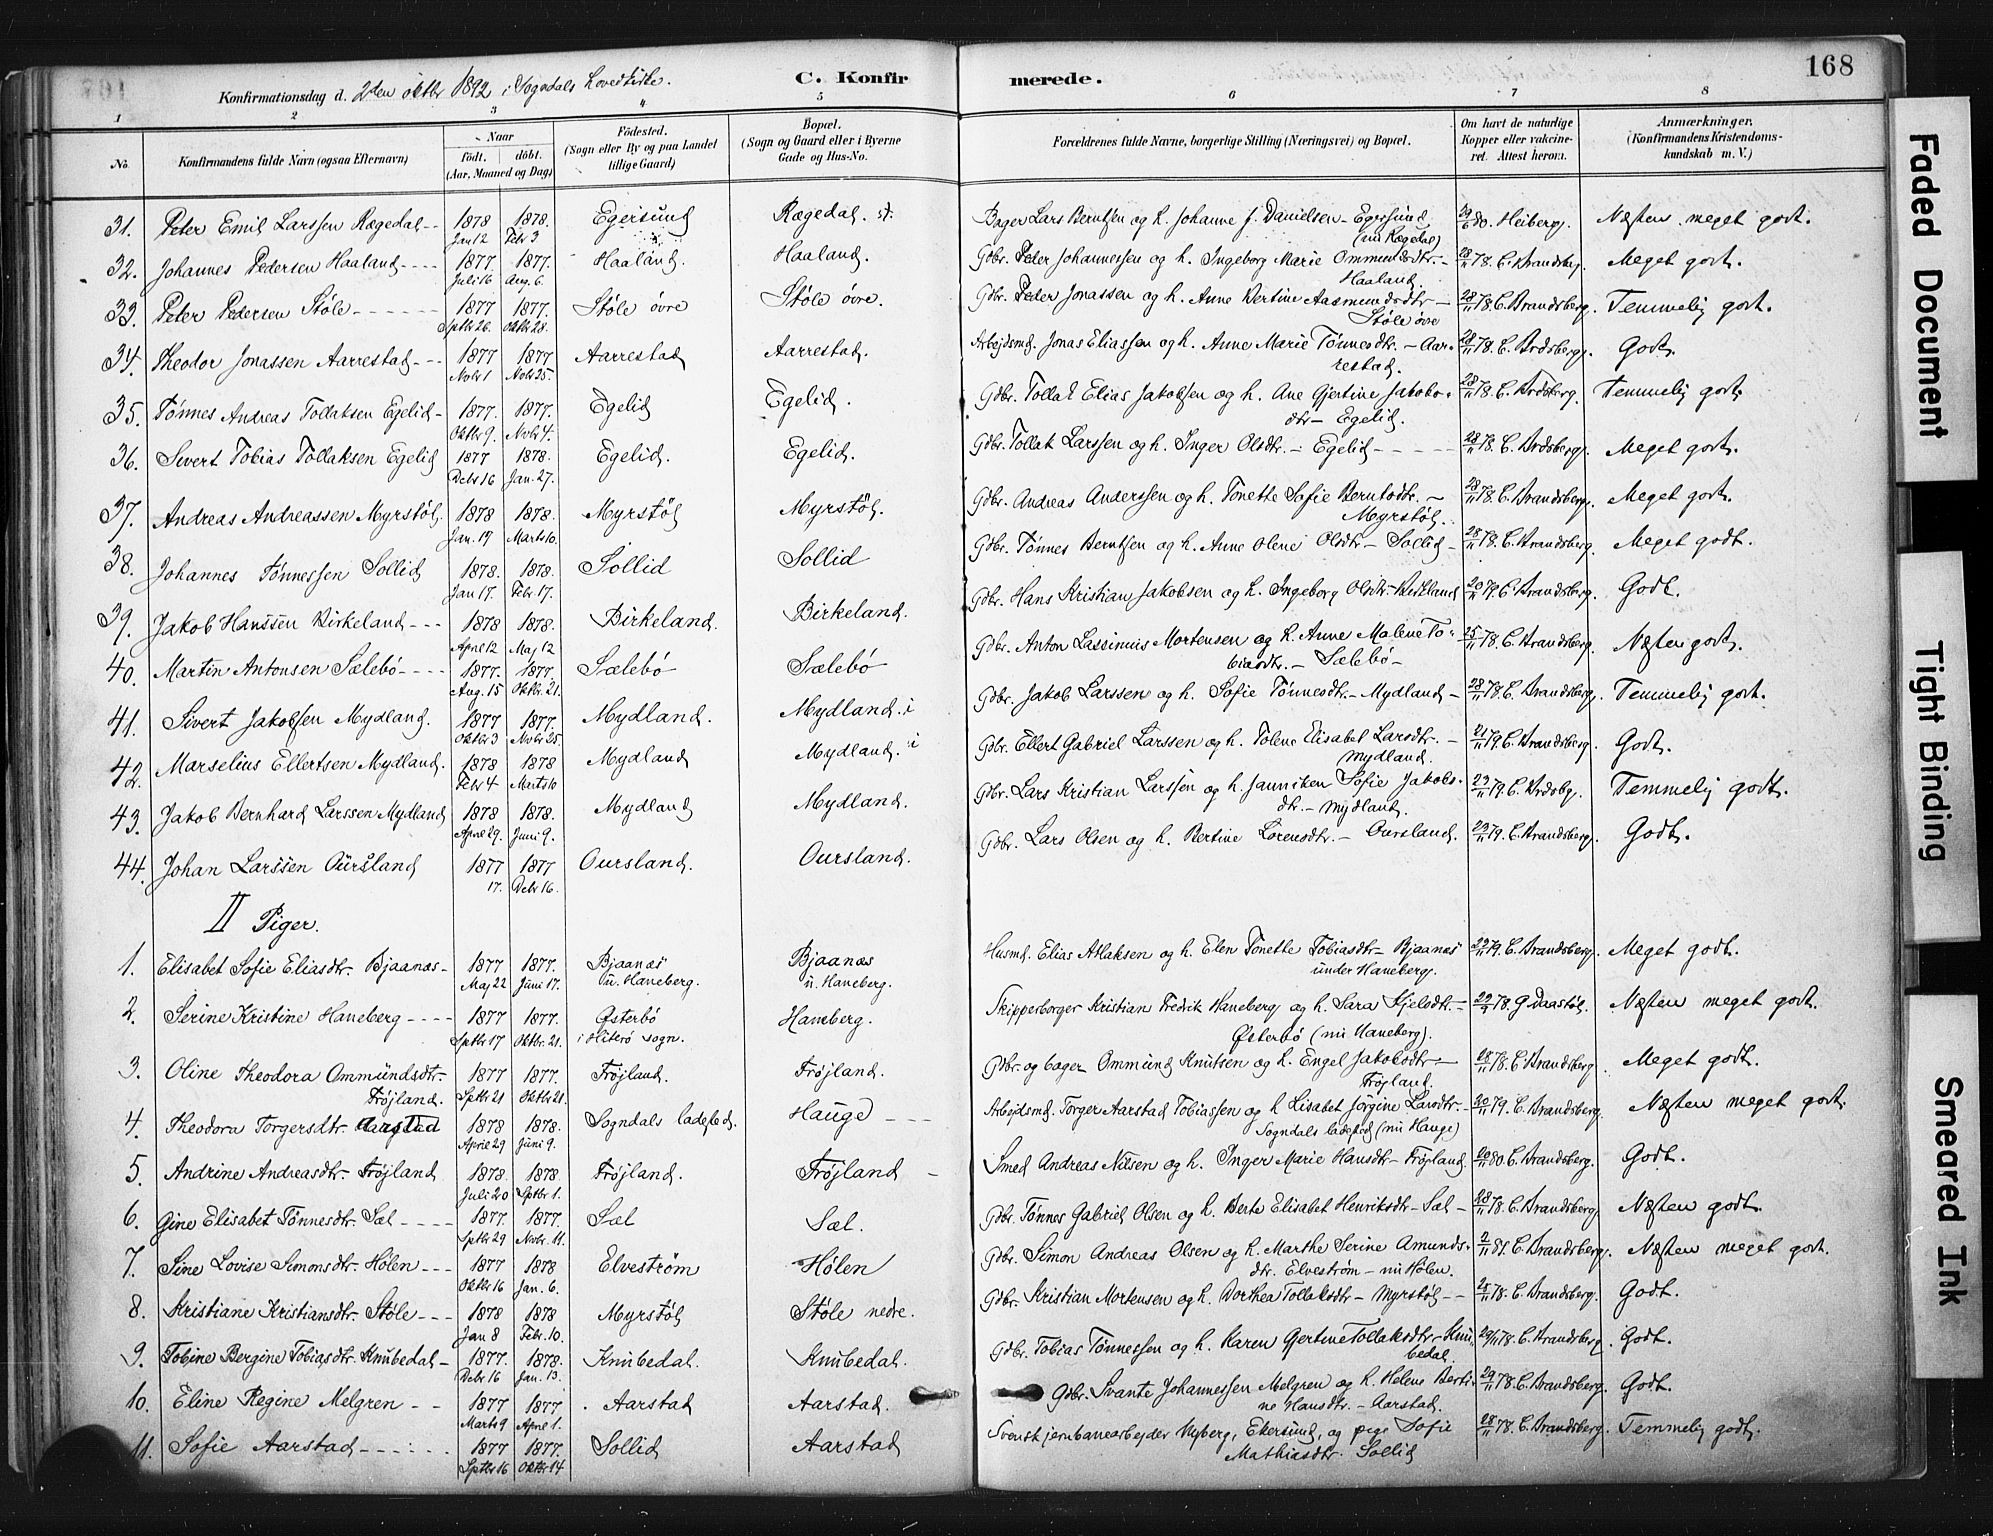 168
Konfirmationsdag d. 2den oktbr 1892 i Sogndals hovedkirke.
C. Konfirmerede.
1 2 3 4 5 6 7 8
No. Konfirmandens fulde Navn (ogsaa Efternavn) Naar født. døbt. (Aar, Maaned og Dag) Fødested. (Sogn eller By og paa Landet tillige Gaard) Bopæl. (Sogn og Gaard eller i Byerne Gade og Hus-No. Forældrenes fulde Navne, borgerlige Stilling (Næringsvei) og Bopæl. Om havt de naturlige Kopper eller vakcineret. Attest herom. Anmærkninger. (Konfirmandens Kristendomskundskab m. V.)
31. Peter Emil Larssen Rægedal 1878 Jan 12 1878. Febr 3 Egersund Rægedal. Bager Lars Berntsen og h. Johanne J. Danielsen - Egersund (nu Rægedal) 80. Heiberg. Næsten meget godt.
32. Johannes Pedersen Haaland 1877 Juli 16 1877. Aug. 6. Haaland. Haaland. Gdbr. Peder Johannessen og h. Ingeborg Marie Ommundsdtr. - Haaland. 28/11 78. C. Brandsbg. Meget godt.
33. Peter Pedersen Støle 1877 Sptbr 26. 1877. Oktbr 28. Støle øvre Støle øvre. Gdbr. Peder Jonassen og h. Anne Bertine Aasmundsdtr - Støle øvre 28/11 78. C. Brandsberg. Temmelig godt.
34. Theodor Jonassen Aarrestad 1877 Novbr 1 1877 Novbr 25. Aarrestad Aarrestad. Arbejdsmd. Jonas Eliassen og h. Anne Marie Tønnesdtr. - Aarrestad. 28/11 78. C. Brdsberg. Godt.
35. Tønnes Andreas Tollaksen Egelid 1877. Oktbr 9. 1877. Novbr 4. Egelid Egelid. Gdbr. Tollak Elias Jakobsen og h. Ane Gjertine Jakobsdtr - Egelid. 28/11 78. C. Brdsberg. Temmelig godt.
36. Sivert Tobias Tollaksen Egelid 1877 Debr 16 1878. Jan. 27. Egelid. Egelid. Gdbr. Tollak Larssen og h. Inger Olsdtr. - Egelid 28/11 78. C. Brdsberg. Meget godt.
37. Andreas Andreassen Myrstøl. 1878 Jan. 19 1878. Marts 10. Myrstøl Myrstøl. Gdbr. Andreas Anderssen og h. Tonette Sofie Berntsdtr. - Myrstøl. 28/11 78. C. Brandsberg. Meget godt.
38. Johannes Tønnessen Sollid 1878. Jan 17. 1878. Febr 17. Sollid Sollid Gdbr. Tønnes Berntsen og h. Anne Olene Olsdtr - Sollid 28/11 78. C. Brandsberg. Meget godt.
39. Jakob Hanssen Birkeland 1878 April 12 1878. Maj 12 Birkeland. Birkeland. Gdbr. Hans Kristian Jakobsen og h. Ingeborg Olsdtr. - Birkeland 20/11 79. C. Brandsberg. Godt.
40. Martin Antonsen Sælebø 1877. Aug. 15 1877. Oktbr. 21. Sælebø Sælebø Gdbr. Anton Lassimius Mortensen og h. Anne Malene Tobiasdtr. - Sælebø - 25/11 78. C. Brandsberg. Næsten godt.
41. Sivert Jakobsen Mydland. 1877 Oktbr 3 1877. Novbr 25. Mydland. Mydland. Gdbr. Jakob Larssen og h. Sofie Tønnesdtr. - Mydland - 28/11 78. C. Brandsberg. Temmelig godt.
42. Marselius Ellertsen Mydland. 1878 Febr 4 1878 Marts 10 Mydland Mydland. Gdbr. Ellert Gabriel Larssen og h. Tolene Elisabet Larsdtr. - Mydland. 21/11 79. C. Brandsberg. Godt.
43. Jakob Bernhard Larssen Mydland 1878 April 29. 1878. Juni 9. Mydland Mydland. Gdbr. Lars Kristian Larssen og h. Janniken Sofie Jakobsdtr. - Mydland. 23/11 79. C. Brdsbg. Temmelig godt.
44. Johan Larssen Oursland 1877 17. 1877 Debr 16. Oursland. Oursland. Gdbr. Lars Olsen og h. Bertine Lorensdtr. - Oursland. 23/11 79. C. Brandsberg. Godt.
II Piger.
1. Elisabet Sofie Eliasdtr. Bjaanæs 1877 Maj 22 1877. Juni 17. Bjaanæs u. Haneberg. Bjaanæs u. Haneberg. Husmd. Elias Atlaksen og h. Elen Tonette Tobiasdtr - Bjaanæs under Haneberg. 22/11 79. C. Brandsberg. Meget godt.
2. Serine Kristine Haneberg 1877 Sptbr 17 1877. Oktbr. 21. Østerbø i Hiterø sogn. Haneberg. Skipperborger Kristian Fredrik Haneberg og h. Sara Kjelsdtr. - Østerbø (nu Haneberg). 78. G. Daastøl. Næsten meget godt.
3. Oline Theodora Ommundsdtr. Frøjland. 1877 Sptbr 21 1877. Oktbr 21. Frøjland. Frøjland. Gdbr. og bager Ommund Knutsen og h. Engel Jakobsdtr - Frøjland. 28/11 78. C. Brandsberg. Meget godt.
4. Theodora Torgersdtr. Aarstad 1878 April 29 1878. Juni 9. Sogndals ladested. Hauge Arbejdsmd. Torger Aarstad Tobiassen og h. Lisabet Jørgine Larsdtr. - Sogndals ladested (nu Hauge) 20/11 79. C. Brandsberg. Næsten meget godt.
5. Andrine Andreasdtr. Frøjland 1878. Juli 20 1878 Sptbr 1. Frøjland. Frøjland Smed Andreas Nilsen og h. Inger Marie Hansdtr - Frøjland. 20/11 80. C. Brandsberg. Godt.
6. Gine Elisabet Tønnesdtr. Sæl 1877. Sptbr 29 1877. Novbr. 11. Sæl Sæl. Gdbr. Tønnes Gabriel Olsen og h. Berte Elisabet Henriksdtr - Sæl - 28/11 78. C. Brandsberg. Næsten godt.
7. Sine Lovise Simonsdtr. Hølen 1877 Oktbr 16 1878 Jan. 6. Elvestrøm Hølen Gdbr. Simon Andreas Olsen og h. Marthe Serine Amundsdtr. Elvestrøm - nu Hølen. 2/11 81. C. Brandsberg. Næsten meget godt.
8. Kristiane Kristiansdtr. Støle 1878 Jan 8 1878 Febr. 10. Myrstøl Støle nedre. Gdbr. Kristian Mortensen og h. Dorthea Tollaksdtr - Myrstøl 25/11 78. C. Brandsberg. Godt.
9. Tobine Bergine Tobiasdtr. Knubedal 1877. Debr 16 1878. Jan. 13. Knubedal. Knubedal. Gdbr. Tobias Tønnessen og h. Karen Gjertine Tollaksdtr - Knubedal. 29/11 78. C. Brandsberg. Godt.
10. Eline Regine Melgren 1877 Marts 9 1877 April 1. Aarstad Aarstad. Gdbr. Svante Johannessen Melgren og h. Helene Bertine Hansdtr. - Aarstad. 29/11 78. C. Brandsberg. Godt.
11. Sofie Aarstad 1877 Sptbr 16 1877. Oktbr 14 Sollid Aarstad Svensk jernbanearbejder Nyberg, Ekersund, og pige Sofie Mathiasdtr. Sollid 28/11 78. C. Brandsberg. Temmelig godt.
Faded Document
Tight Binding
Smeared Ink